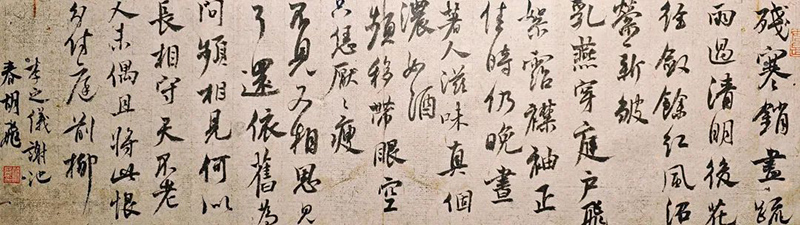 殘寒銷盡疏
雨過清明後花
徑斂餘紅風沼
縈新皺
乳燕穿庭戶飛
絮霑襟袖正
佳時仍晚晝
著人滋味真個
濃如酒
頻移帶眼空
只恁厭〻瘦
不見又相思見
了還依舊為
問頻相見何以
長相守天不老
人未偶且將此恨
分付庭前柳
李之儀謝池
春胡